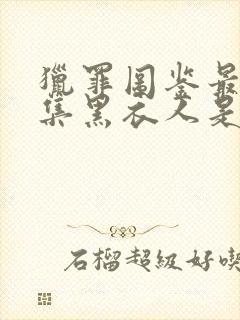 獵罪图鉴最
集黑衣人是
石榴超级好喫